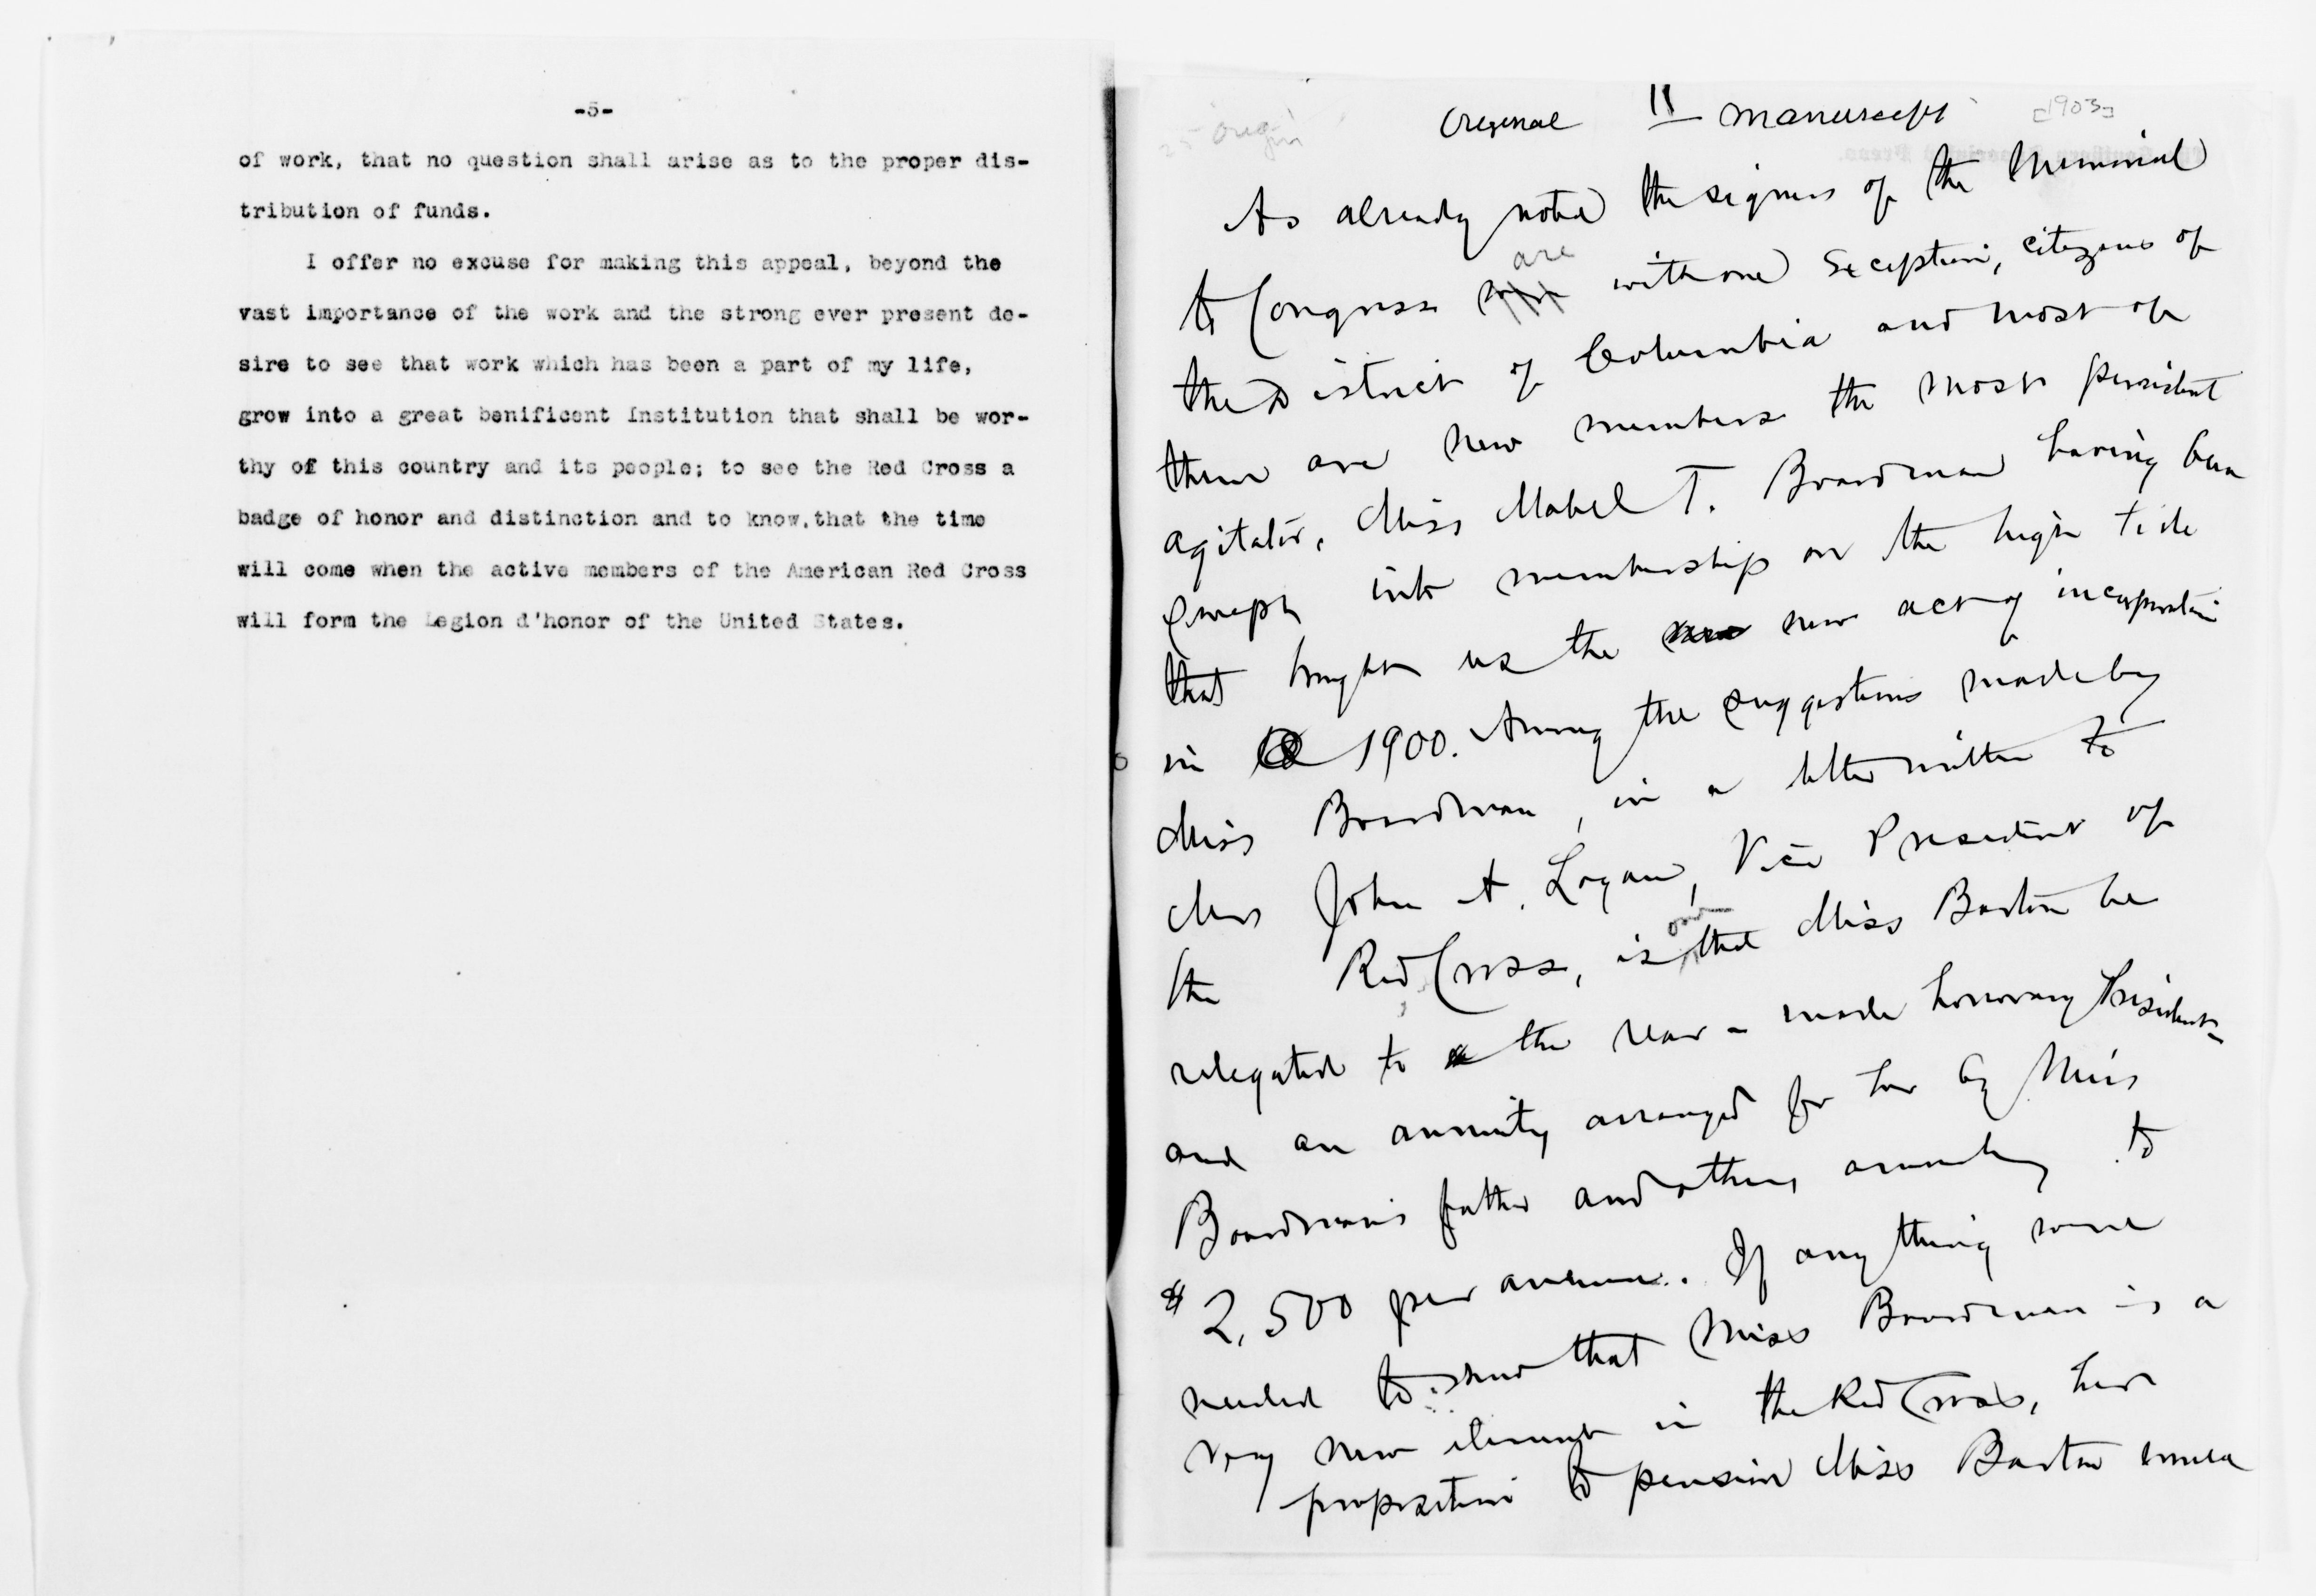 -5-
of work, that no question shall arise as to the proper dis-
tribution of funds.
I offer no excuse for making this appeal, beyond the
vast importance of the work and the strong ever present de-
sire to see that work which has been a part of my life,
grow into a great benificent Institution that shall be wor-
thy of this country and its people; to see the Red Cross a
badge of honor and distinction and to know,that the time
will come when the active members of the American Red Cross
will form the Legion d'honor of the United States.
Original II manuscript [1903]
25 Orig
As already noted the signers of the Memorial
are
to Congress were with one exception, citizens of
the District of Columbia and most of
them are new members the most persistent
agitator, Miss Mabel T. Boardman having been
swept into membership on the high tide
that brought us the new new act of incorporation
in 1900. Among the suggestions made by
Miss Boardman, in a letter written to
Mrs John A. Logan, Vice President of
one
the Red Cross, is that Miss Barton be
relegated to the rear - made honorary President -
and an annuity arranged for her by Miss
Boardman's father and others amounting to
$2,500 per annum. If any thing were
needed to show that Miss Boardman is a
very new element in the Red Cross, her
proposition to pension Miss Barton